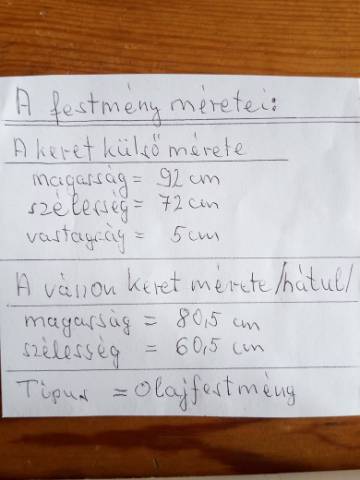 A festmény méretei:
A keret külső mérete
magasság = 92 cm
szélesség = 72 cm
vastagság = 5 cm
A vászon keret mérete /hátul/
magasság = 80,5 cm
szélesség = 60,5 cm
Tipus = Olajfestmény